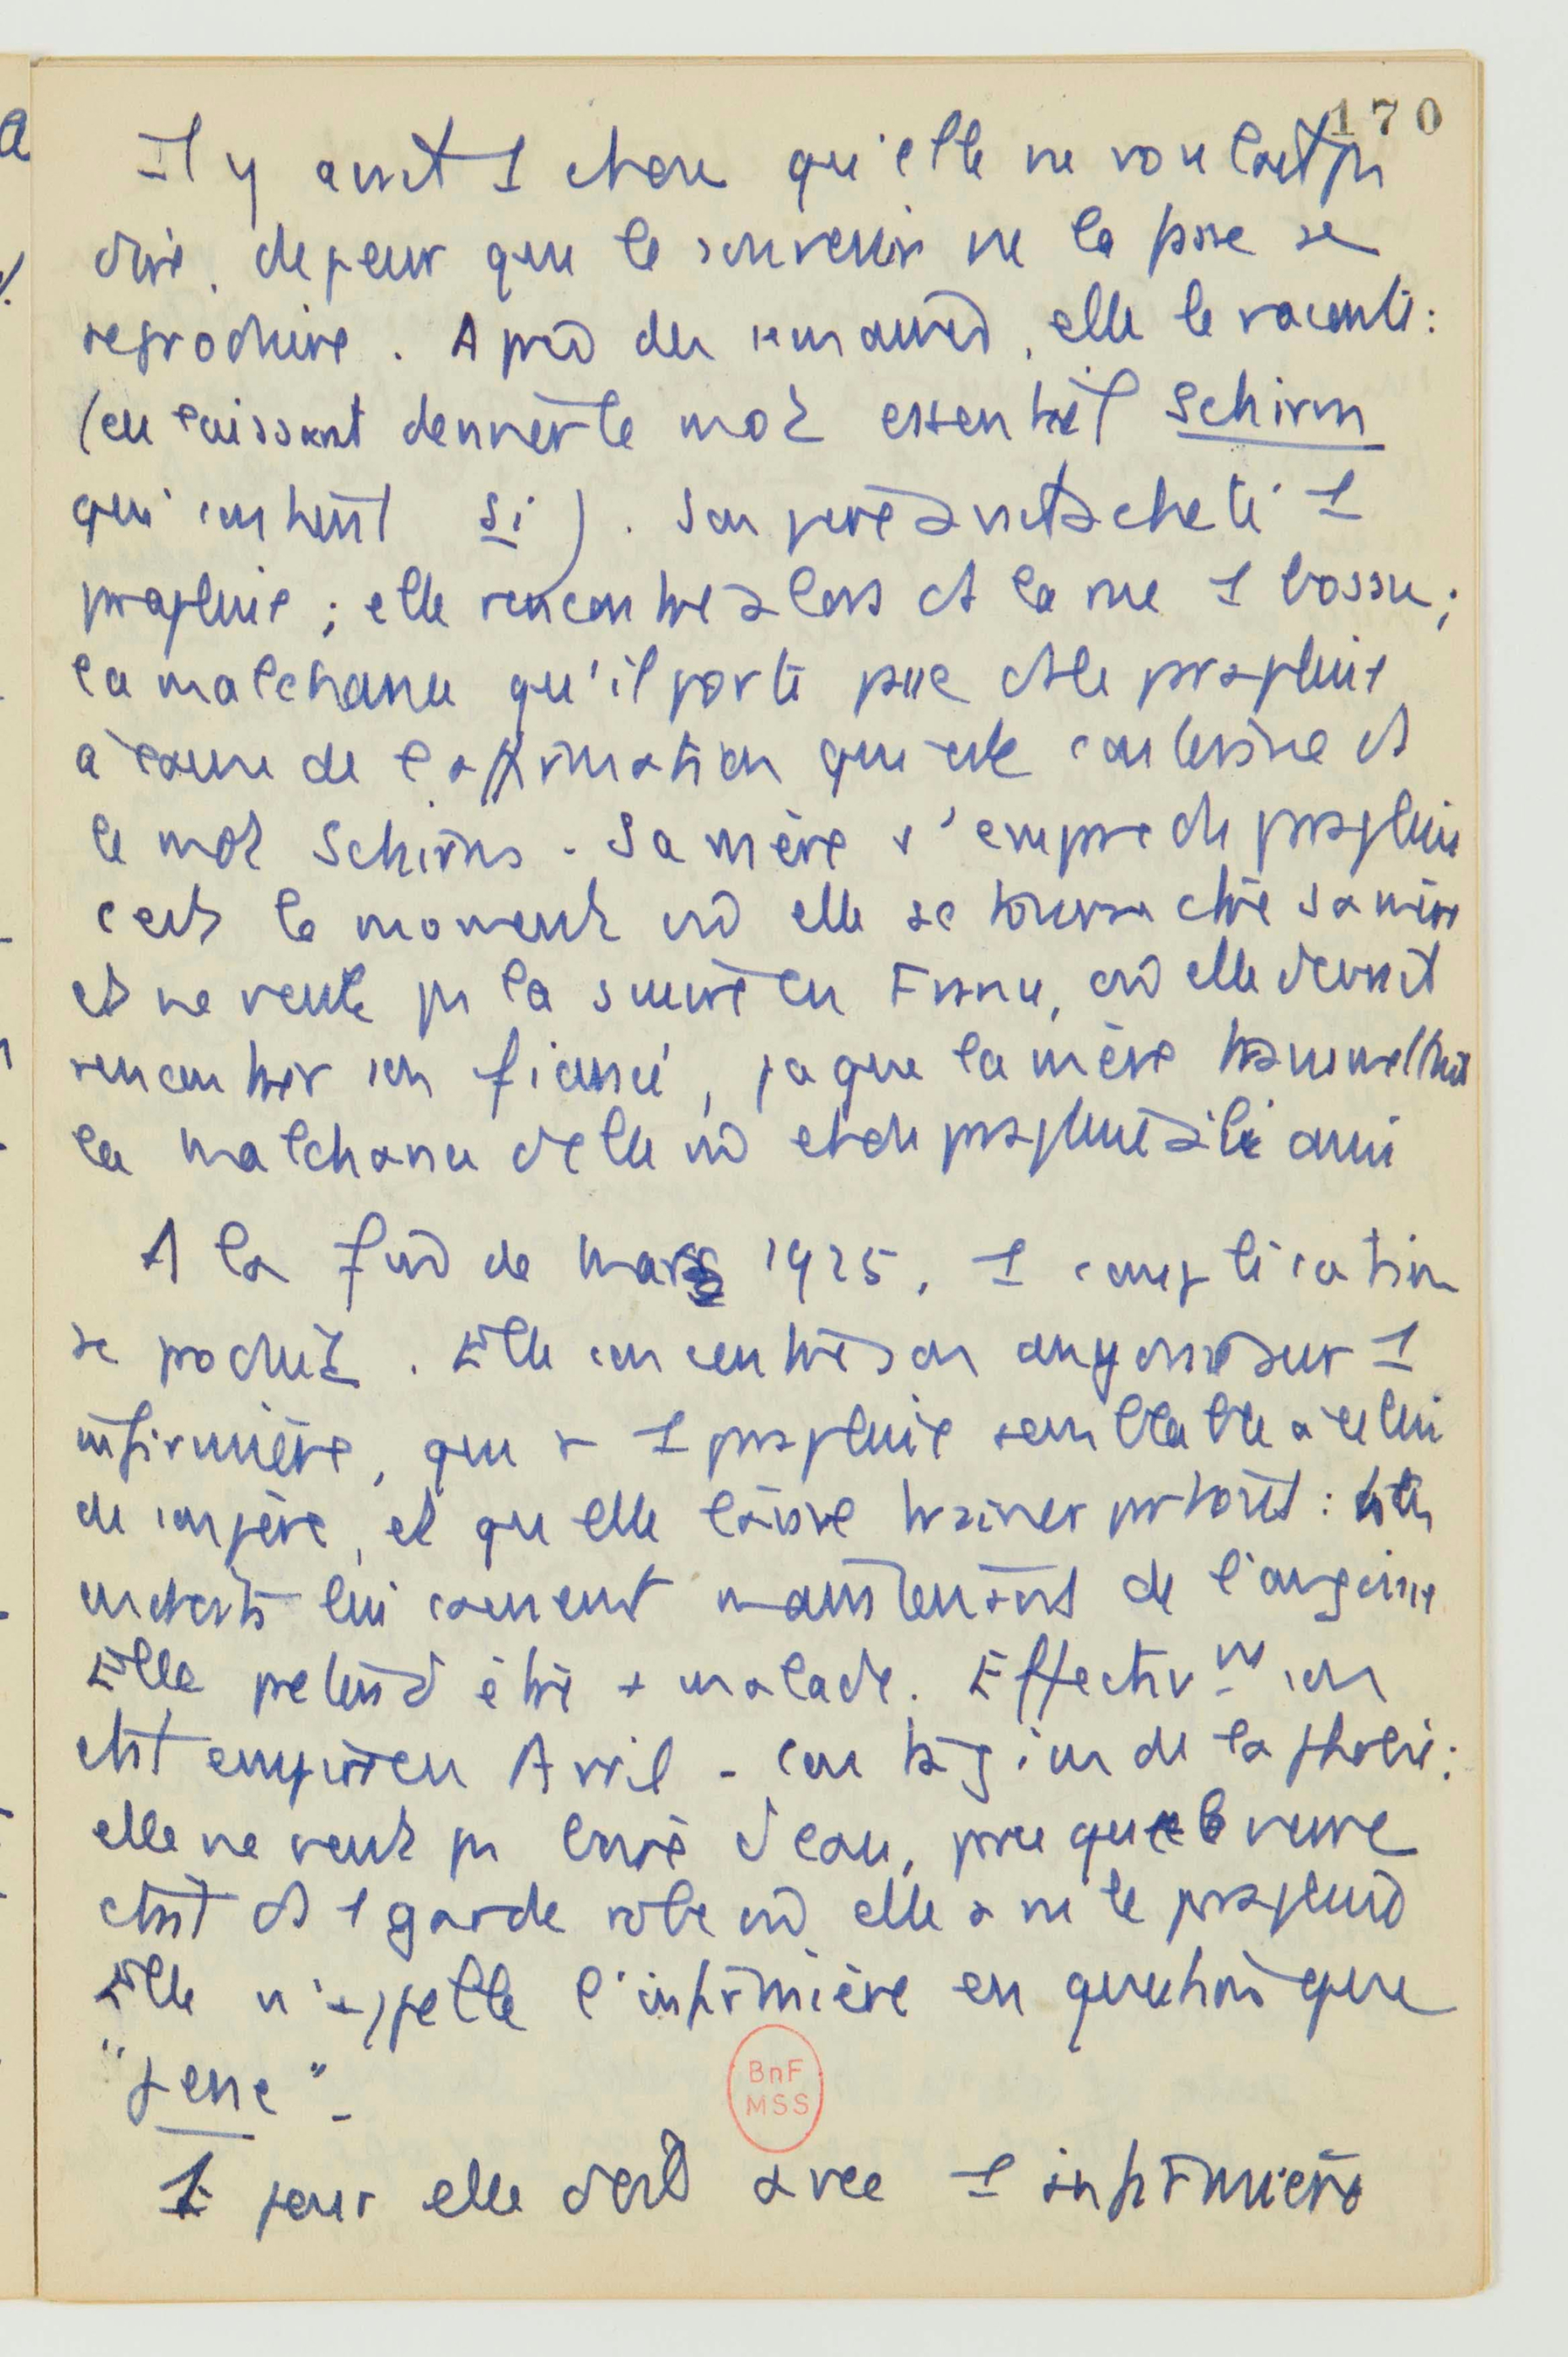 170
Il y avait 1 chose qu'elle ne voulait pas
dire, de peur que le souvenir ne la fasse se
reproduire. Après des semaines, elle le raconte :
(en laissant deviner le mot essentiel Schirm
qui contient si). Son père avait acheté 1
parapluie ; elle rencontre alors ds la rue 1 bossu ;
la malchance qu'il porte passe ds le parapluie
à cause de l'affirmation qui est contenue ds
le mot Schirm. Sa mère s'empare du parapluie
c'est le moment où elle se tourna ctre sa mère
et ne veut pas la suivre en France, où elle devait
rencontrer son fiancé, pa que la mère transmettrait
la malchance de là où était le parapluie à l'ami
A la fin de Mars 1925, 1 complication
se produit. Elle concentre son angoisse sur 1
infirmière, qui a 1 parapluie semblable à celui
de son père, et qu'elle laisse trainer partout :
endroits lui causent maintenant de l'angoisse
Elle prétend être + malade. Effectivmt son
état empire en Avril - Contagion de la phobie :
elle ne veut pas boire d'eau, parce que le verre
était ds 1 garde robe où elle a vu le parapluie
Elle n'appelle l'infirmière en question que
BnF
MSS
1 jour elle sort avec 1 infirmière